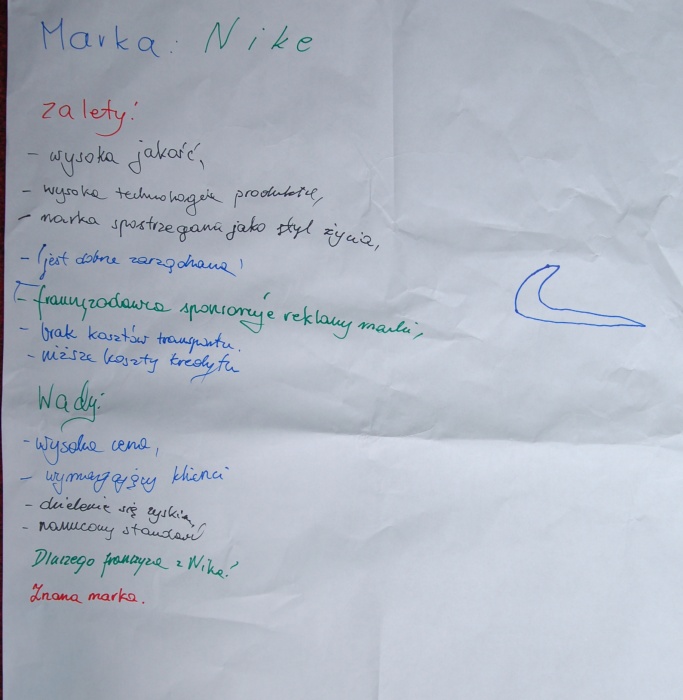 Marka: Nike
Zalety:
- wysoka jakość,
- wysoka technologia produkcji,
- marka spostrzegana jako styl życia,
- (jest dobrze zarządzana)
- franczyzodawca sponsoruje reklamy marki,
- brak kosztów transportu.
- niższe koszty kredytu
Wady:
- wysoka cena,
- wymagający klienci
- dzielenie się zyskiem,
- narzucony standard
Dlaczego franczyza z Nike?
Znana marka.